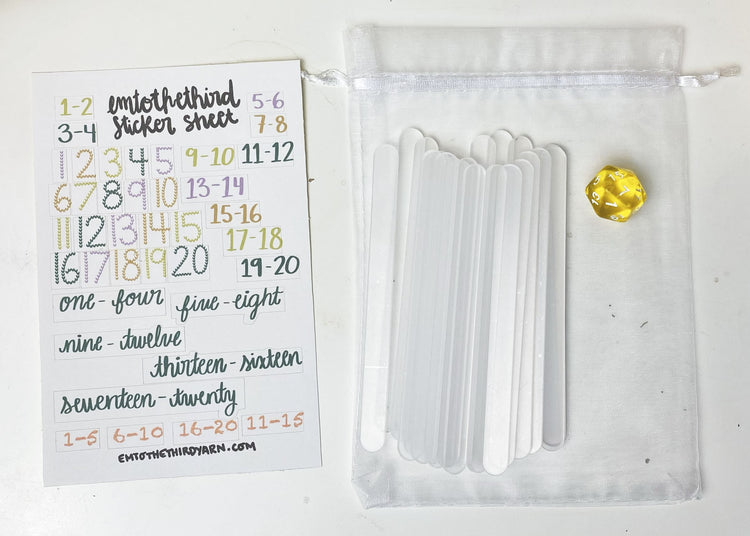 emtothethird
sticker sheet
1-2
5-6
3-4
7-8
1 2 3 4 5 9-10 11-12
6 7 8 9 10 13-14
15-16
11 12 13 14 15 17-18
16 17 18 19 20 19-20
one - four five - eight
nine - twelve
thirteen - sixteen
seventeen - twenty
1-5 6-10 16-20 11-15
EMTOTHETHIRDYARN.COM